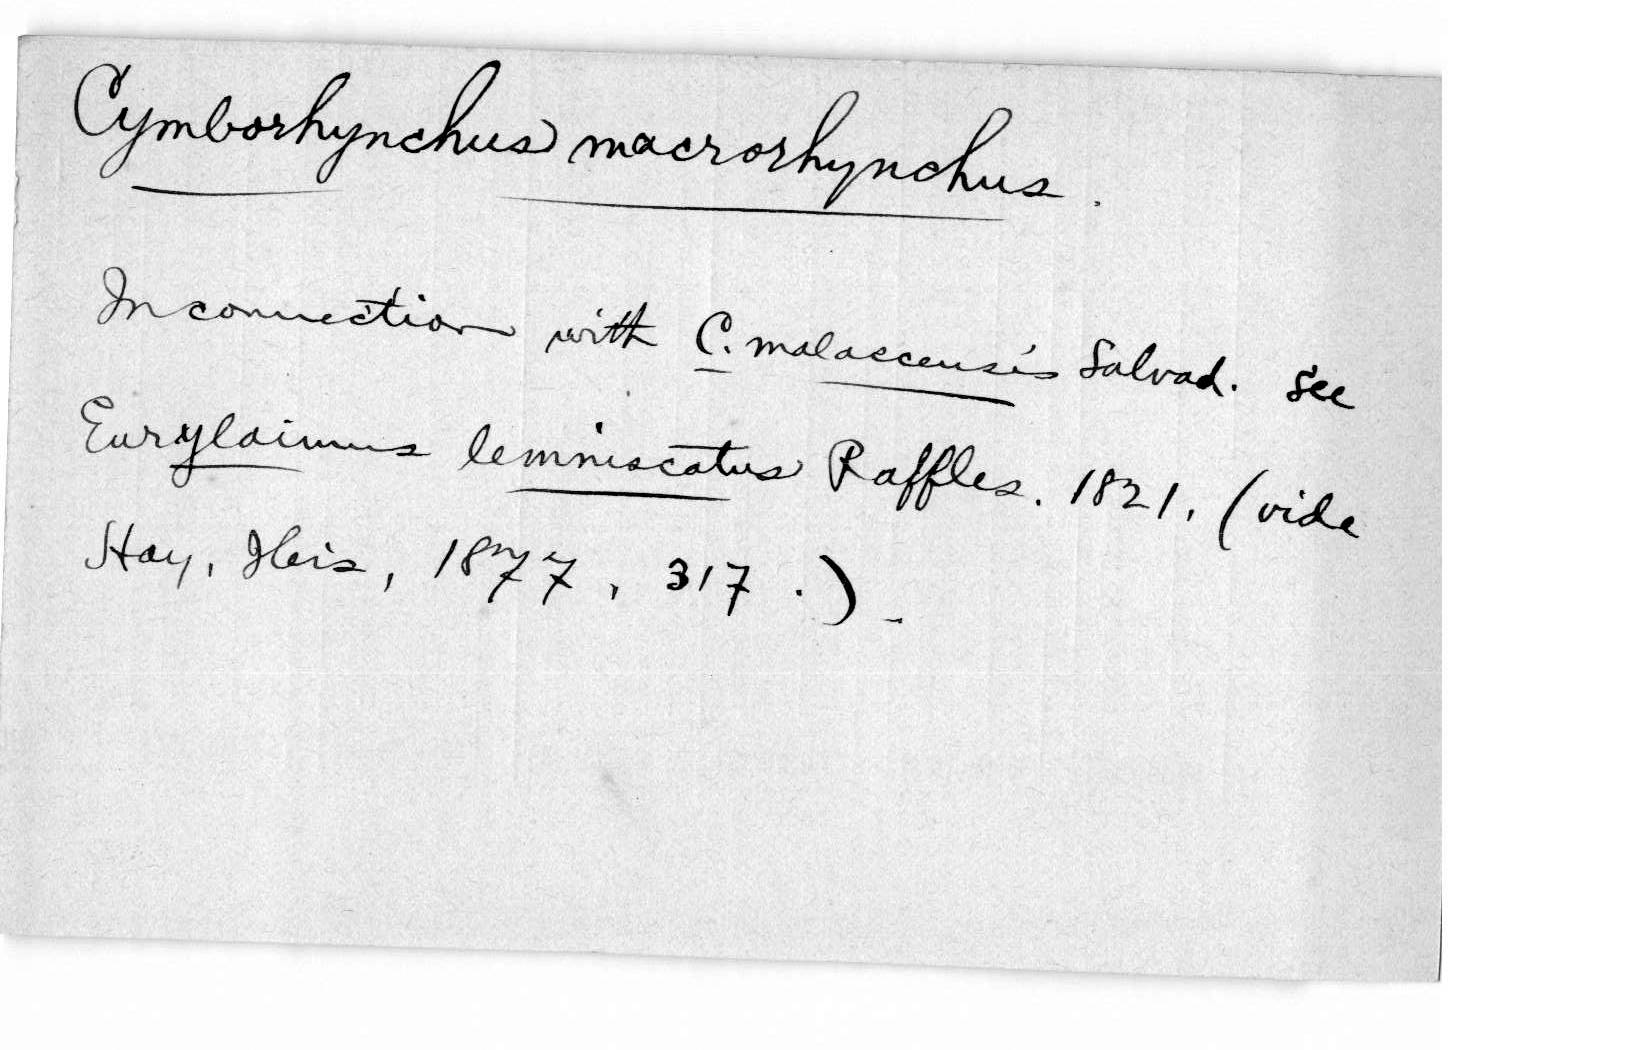 Cymborhynchus macrorhynchus.
In connection with C. malaccensis Salvad. See
Eurylaimus lemniscatus Raffles. 1821, (vide
Hay, Ibis, 1877, 317.).